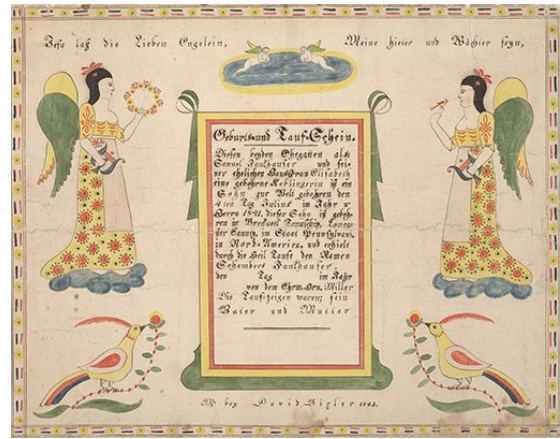 Jesu laß die Lieben Engelein, Meine hieter und Wächter seyn,
Geburts-und Tauf-Schein.
Diesen beyden Ehegatten als
Samuel Faulhauser und sei-
ner ehelichen Hausfrau Elisabeth
eine gebohrne Reblingerin ist ein
Sohn zur Welt gebohren den
4ten Tag Julius im Jahr u.
Herrn 1841, dieser Sohn ist geboh-
ren in Taunschip, Lanca-
ster Caunty, im Staat Pennsylvani,
in Nord-America, und erhielt
durch die Heil Taufe den Namen
Faulhauser.
den Tag im Jahr
von dem Ehrw. Den. Miller
Die Taufzeigen waren; sein
Vater und Mutter
bey David